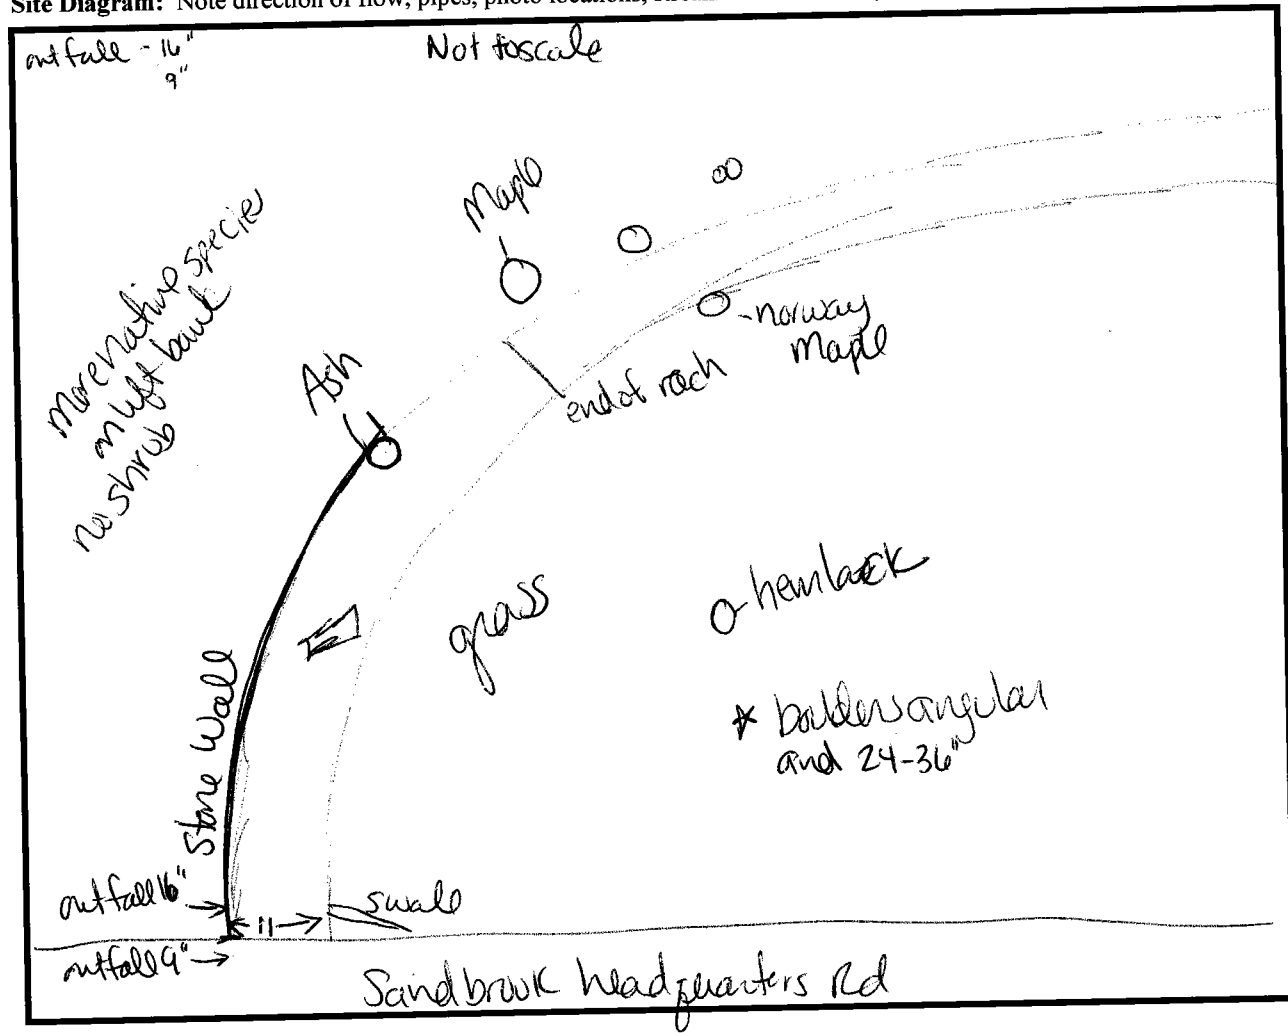 Site Diagram: Note direction of flow, pipes, photo locations,
outfall - 16"
9"
Not to scale
Maple
More native species
on left bank
no shrub
Ash
norway
Maple
end of reach
grass
hemlock
* boulders angular
and 24-36"
Stone Wall
outfall 16"
11
swale
outfall 9"
Sandbrook headquarters Rd